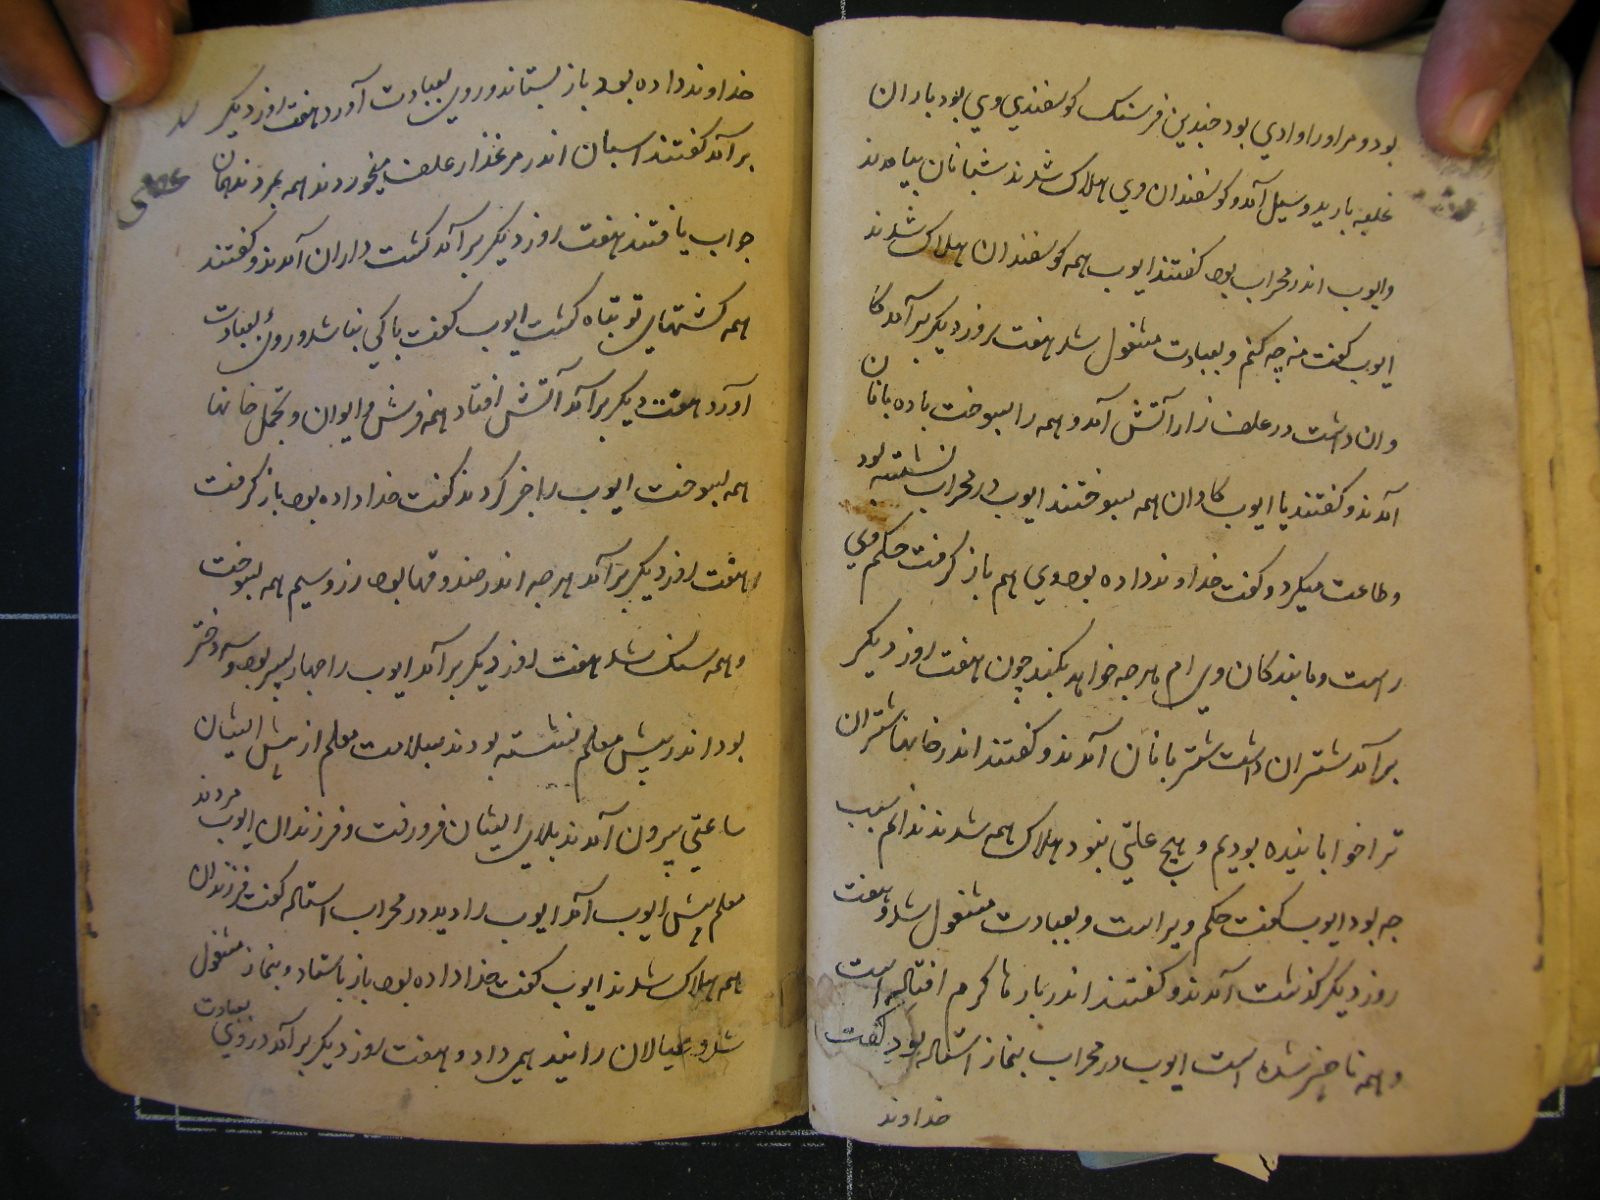 بود و مر او را وادي بود چندين فرسنك كوسفندي وي بود باران
غلبه باريد و سيل آمد و كوسفندان وي هلاك شدند شبانان بيامدند
و ايوب اندر محراب بود كفتند ايوب همه كوسفندان هلاك شدند
ايوب كفت من چه كنم و بعبادت مشغول شد هفت روز ديكر برآمد كا
وان داشت در علف زار آتش آمد و همه را بسوخت باده بانان
آمدند و كفتند يا ايوب كاوان همه بسوختند ايوب در محراب نشسته بود
و طاعت ميكرد و كفت خداوند داده بود وي هم باز كرفت حكم وي
راست و ما بندكان وي ام هرجه خواهد بكند چون هفت روز ديكر
برآمد شتران داشت شتربانان آمدند و كفتند اندر خانها شتران
ترا خوابانيده بوديم و هيچ علتي نبود هلاك همه شدند ندانم سبب
جه بود ايوب كفت حكم ويراست و بعبادت مشغول شد و هفت
روز ديكر كذشت آمدند و كفتند اندر بارها كرم افتاده است
و همه ناخير شده است ايوب در محراب بنماز استاده بود كفت
خداوند
خداوند داده بود باز بستاند و روي بعبادت آورد هفت روز ديكر
برآمد كفتند اسبان اندر مرغذار علف ميخوردند همه بمردند همان
جواب يافتند هفت روز ديكر برآمد كشت داران آمدند و كفتند
همه كشتهاي تو تباه كشت ايوب كفت باكي نباشد و روئ بعبادت
آورد هفت ديكر برآمد آتش افتاد همه فرش و ايوان و تجمل خانها
همه بسوخت ايوب را خبر كردند كفت خدا داده بود باز كرفت
هفت روز ديكر برآمد هرجه اندر صندوقها بود زر و سيم همه بسوخت
و همه سنك شد هفت روز ديكر برآمد ايوب را جهار پسر بود و سه دختر
بود اندر پيش معلم نشسته بودند بسلامت معلم از پيش ايشان
ساعتي بيرون آمدند بلاي ايشان فرو رفت و فرزندان ايوب مردند
معلم پيش ايوب آمد ايوب را ديد در محراب استاده كفت فرزندان
همه هلاك شدند ايوب كفت خدا داده بود باز باستاد و بنماز مشغول
شد و عيالان را پند همي داد و هفت روز ديكر برآمد در روي بعبادت